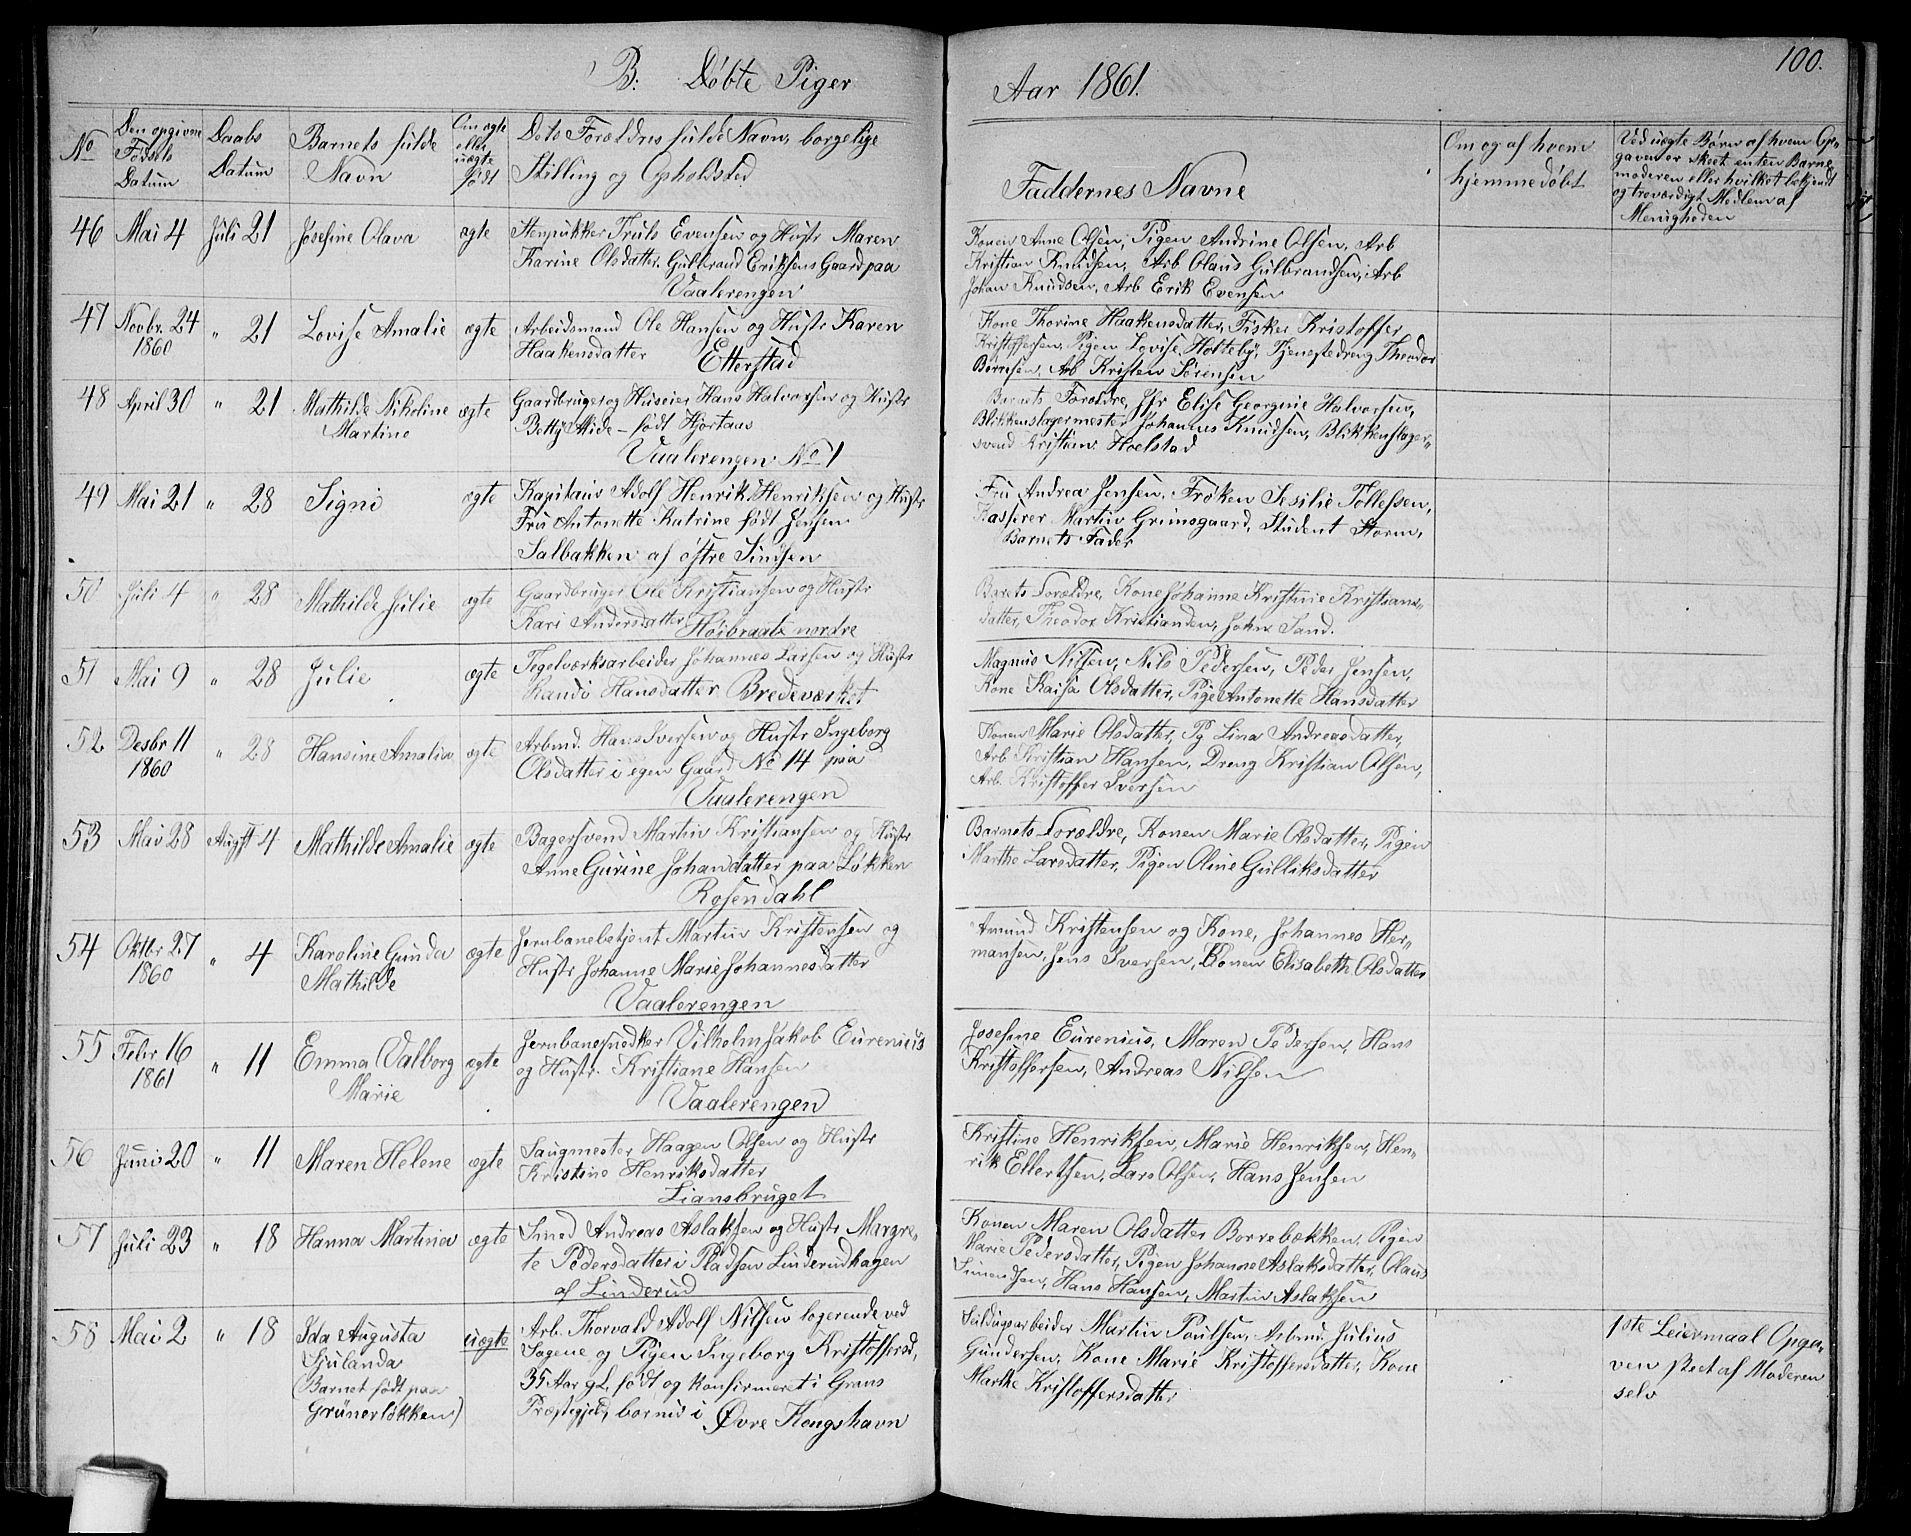 B. Døbte Piger
Aar 1861.
100.
No
Den opgivne Fødsels Datum
Daabs Datum
Barnets fulde Navn
Om ægte eller uægte født
Dets Forældres fulde Navn, borgelige Stilling og Opholdssted
Faddernes Navne
Om og af hvem hjemmedøbt
Ved uægte Børn af hvem Opgaven er skeet enten Barnemoderen eller hvilket bekjendt og troværdigt Medlem af Menigheden
46 Mai 4 Juli 21 Josefine Olava ægte
Stenpukker Truls Evensen og Hustr Maren
Karine Olsdatter, Gulbrand Eriksens Gaard paa
Vaalerengen
Konen Anne Olsen, Pigen Andrine Olsen, Arb
Kristian Knudsen, Arb Olaus Gulbrandsen, Arb
Johan Knudsen, Arb Erik Evensen
47 Novbr. 24 1860 " 21 Lovise Amalie ægte
Arbeidsmand Ole Hansen og Hustr Karen
Haakensdatter Etterstad
Kone Thorine Haakensdatter, Fisker Kristoffer
Kristoffersen, Pigen Lovise Holteby, Tjenestedreng Theodor
Børresen, Arb Kristen Sørensen
48 April 30 " 21 Mathilde Nikoline Martine ægte
Gaardbruger og Huseier Hans Halvorsen og Hustr
Betty Mide - født Hjortaas
Vaalerengen No 1
Barnets Forældre, Jfr Elise Georgine Halvorsen,
Blikkenslagermester Johannes Knudsen, Blikkenslager-
svend Kristian Hoelstad
49 Mai 21 " 28 Signi ægte
Kapitain Adolf Henrik Henriksen og Hustr
Fru Antonette Katrine født Jensen
Salbakken af østre Sinsen
Fru Andrea Jensen, Frøken Sesilie Tollefsen,
Kasserer Martin Grimsgaard, Student Storm,
Barnets Fader
50 Juli 4 " 28 Mathilde Julie ægte
Gaardbruger Ole Kristiansen og Hustr
Kari Andersdatter Høibraate nordre
Barets Forældre, Kone Johanne Kristine Kristians-
datter, Theodor Kristiansen, John Sand.
51 Mai 9 " 28 Julie ægte
Tegelværksarbeider Johannes Larsen og Hustr
Randi Hansdatter Bredeværket
Magnus Nilsen, Nils Pedersen, Peder Jensen,
Kone Kaisa Olsdatter, Pige Antonette Hansdatter
52 Desbr 11 1860 " 28 Hansine Amalia ægte
Arbmd. Hans Iversen og Hustr Ingeborg
Olsdatter i egen Gaard No 14 paa
Vaalerengen
Konen Marie Olsdatter, Pg Lina Andreasdatter,
Arb Kristian Hansen, Dreng Kristian Olsen,
Arb. Kristoffer Iversen
53 Mai 28 Augst 4 Mathilde Amalie ægte
Bagersvend Martin Kristiansen og Hustr
Anne Gurine Johansdatter paa Løkken
Rosendahl
Barnets Forældre, Konen Marie Olsdatter, Pigen
Marthe Larsdatter, Pigen Oline Gulliksdatter
54 Oktbr 27 1860 " 4 Karoline Gunda Mathilde ægte
Jernbanebetjent Martin Kristensen og
Hustr Johanne Marie Johannesdatter
Vaalerengen
Amund Kristensen og Kone, Johannes Her-
mansen, Jens Iversen, Konen Elisabeth Olsdatter
55 Febr 16 1861 " 11 Emma Valborg Marie ægte
Jernbanesnedker Vilhelm Jakob Eurenius
og Hustr. Kristiane Hansen
Vaalerengen
Josefine Eurenius, Maren Pedersen, Hans
Kristoffersen, Andreas Nilsen
56 Juni 20 " 11 Maren Helene ægte
Saugmester Haagen Olsen og Hustr
Kristine Henriksdatter
Liansbruget
Kristine Henriksen, Marie Henriksen, Hen-
rik Ellertsen, Lars Olsen, Hans Jensen
57 Juli 23 " 18 Hanna Martina ægte
Smed Andreas Aslaksen og Hustr Margre-
te Pedersdatter i Pladsen Linderudhagen
af Linderud
Konen Maren Olsdatter Borrebækken, Pigen
Marie Pedersdatter, Pigen Johanne Aslaksdatter, Olaus
Simensen, Hans Hansen, Martin Aslaksen
58 Mai 2 " 18 Ida Augusta
Sjulanda
(Barnet født paa
Grünerløkken) uægte
Arb. Thorvald Adolf Nilsen logerende ved
Sagene og Pigen Ingeborg Kristoffersd,
35 Aar gl, født og konfirmeret i Grans
Præstegjeld, bornis i Øvre Kongshavn
Martin Poulsen, Arbmd. Julius
Gundersen, Kone Marie Kristoffersdatter, Kone
Marthe Kristoffersdatter
1ste Leiermaal Opga-
ven skeet af Moderen
selv